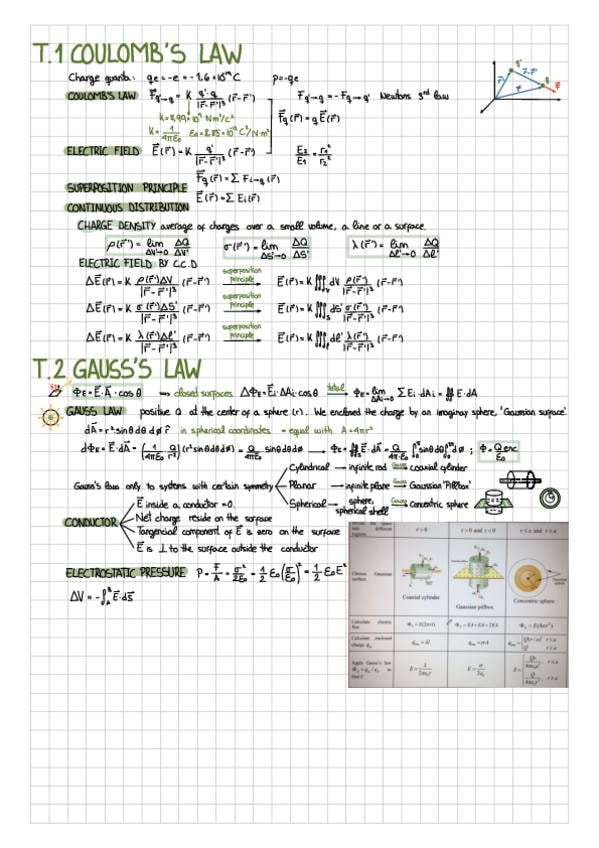 T.1 COULOMB'S LAW
Charge quanta: qe = -e = -1.6 × 10⁻¹⁹ C    p = -qe
COULOMB'S LAW F⃗q'→q = K q'·q / |r⃗-r⃗'|³ (r⃗-r⃗')    Fq'→q = -Fq→q' Newtons 3rd law
K = 8,99 × 10⁹ N·m²/c²    F⃗q(r⃗) = q E⃗(r⃗)
K = 1/4πε₀    ε₀ = 8,85 × 10⁻¹² C²/N·m²
ELECTRIC FIELD E⃗(r⃗) = K q' / |r⃗-r⃗'|³ (r⃗-r⃗')    E₂/E₁ = r₁²/r₂²
SUPERPOSITION PRINCIPLE F⃗q(r⃗) = Σ Fi→q(r⃗)
E⃗(r⃗) = Σ Ei(r⃗)
CONTINUOUS DISTRIBUTION
CHARGE DENSITY average of charges over a small volume, a line or a surface.
ρ(r⃗') = lim ΔV'→0 ΔQ/ΔV'    σ(r⃗') = lim ΔS'→0 ΔQ/ΔS'    λ(r⃗') = lim Δl'→0 ΔQ/Δl'
ELECTRIC FIELD BY C.C.D
ΔE⃗(r⃗) = K ρ(r⃗')ΔV / |r⃗-r⃗'|³ (r⃗-r⃗') superposition principle → E(r⃗) = K ∭ dV ρ(r⃗') / |r⃗-r⃗'|³ (r⃗-r⃗')
ΔE⃗(r⃗) = K σ(r⃗')ΔS' / |r⃗-r⃗'|³ (r⃗-r⃗') superposition principle → E(r⃗) = K ∭ dS' σ(r⃗') / |r⃗-r⃗'|³ (r⃗-r⃗')
ΔE⃗(r⃗) = K λ(r⃗')Δl' / |r⃗-r⃗'|³ (r⃗-r⃗') superposition principle → E(r⃗) = K ∭ dl' λ(r⃗') / |r⃗-r⃗'|³ (r⃗-r⃗')
T.2 GAUSS'S LAW
ΦE = E⃗·A⃗·cosθ ⟹ closed surfaces ΔΦE = E⃗i·ΔAi·cosθ total → ΦE = lim ΔAi→0 Σ Ei·dAi = ∯ E·dA
GAUSS LAW positive Q at the center of a sphere (r). We enclosed the charge by an imaginay sphere, 'Gaussian surface'.
dA⃗ = r² sinθ dθ dø r̂ in spherical coordinates = equal with A = 4πr²
dΦE = E⃗·dA⃗ = (1/4πε₀ Q/r²)(r² sinθ dθ dø) = Q/4πε₀ sinθ dθ dø → ΦE = ∯ E⃗·dA⃗ = Q/4π·ε₀ ∫ sinθ dθ ∫ dø ; Φ = Qenc/ε₀
Cylindrical → infinite rod Gauss → coaxial cylinder
Gauss's law only to systems with certain symmetry Planar → infinite plane Gauss → Gaussian "Pillbox"
Spherical → sphere, spherical shell Gauss → Concentric sphere
E⃗ inside a conductor = 0.
CONDUCTOR Net charge reside on the surface
Tangencial component of E⃗ is zero on the surface
E⃗ is ⊥ to the surface outside the conductor
ELECTROSTATIC PRESSURE P = F/A = σ²/2ε₀ = 1/2 ε₀(σ/ε₀)² = 1/2 ε₀E²
ΔV = -∫ E⃗·ds⃗
regions r > 0    z > 0 and z < 0    r ≤ a and r ≥ a
Choose Gaussian surface
Coaxial cylinder    Gaussian pillbox    Concentric sphere
Calculate electric flux    ΦE = E(2πrl)    ΦE = EA + EA = 2EA    ΦE = E(4πr²)
Calculate enclosed charge qenc    qenc = λl    qenc = σA    Q(r/a)³ r ≤ a    Q r ≥ a
Apply Gauss's law ΦE = qenc/ε₀ to find E    E = λ/2πε₀r    E = σ/2ε₀    E = Qr/4πε₀a³, r ≤ a    Q/4πε₀r², r ≥ a